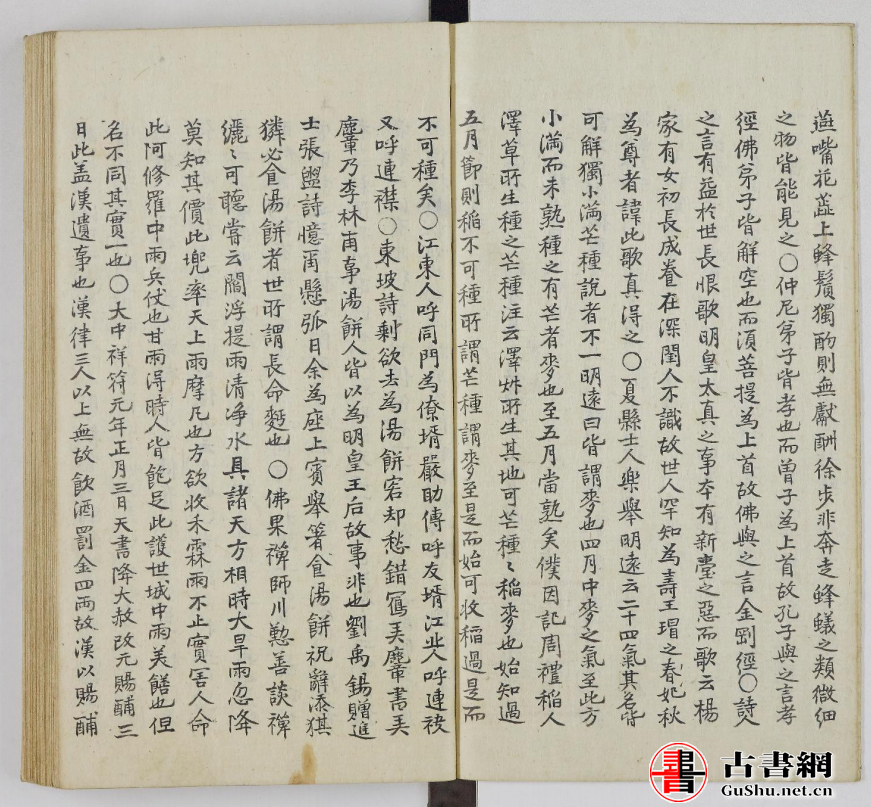 燕嘴花蕊上蜂鬚獨酌則無獻酬徐步非奔走蜂蟻之類微細
之物皆能見之〇仲尼弟子皆孝也而曾子為上首故孔子與之言孝
經佛弟子皆解空也而須菩提為上首故佛與之言金剛經〇詩人
之言有益於世長恨歌明皇太真之事本有新臺之惡而歌云楊
家有女初長成養在深閨人不識故世人罕知為壽王瑁之春妃秋
為尊者諱此歌真得之〇夏縣士人樂舉明遠云二十四氣其名皆
可解獨小滿芒種說者不一明遠曰皆謂麥也四月中麥之氣至此方
小滿而未熟種之有芒者麥也至五月當熟矣僕因記周禮稻人
澤草所生種之芒種注云澤艸所生其地可芒種〻稻麥也始知過
五月節則稻不可種所謂芒種謂麥至是而始可收稻過是而
不可種矣〇江東人呼同門為僚壻嚴助傳呼友壻江北人呼連袂
又呼連襟〇東坡詩剩欲去為湯餅客却愁錯寫弄麞書弄
麞乃李林甫事湯餅人皆以為明皇王后故事非也劉禹錫贈進
士張盥詩憶甭懸弧日余為座上賓舉箸食湯餅祝辭添麒
獜必食湯餅者世所謂長命麪也〇佛果禪師川懃善談禪
纚〻可聽嘗云閻浮提雨清净水具諸天方相時大旱雨忽降
莫知其價此兜率天上雨摩尼也方欲收禾霖雨不止實害人命
此阿修羅中雨兵仗也甘雨得時人皆飽足此護世城中雨美饍也但
名不同其實一也〇大中祥符元年正月三日天書降大赦改元賜酺三
日此盖漢遺事也漢律三人以上無故飲酒罰金四兩故漢以賜酺
古書網
GuShu.net.cn